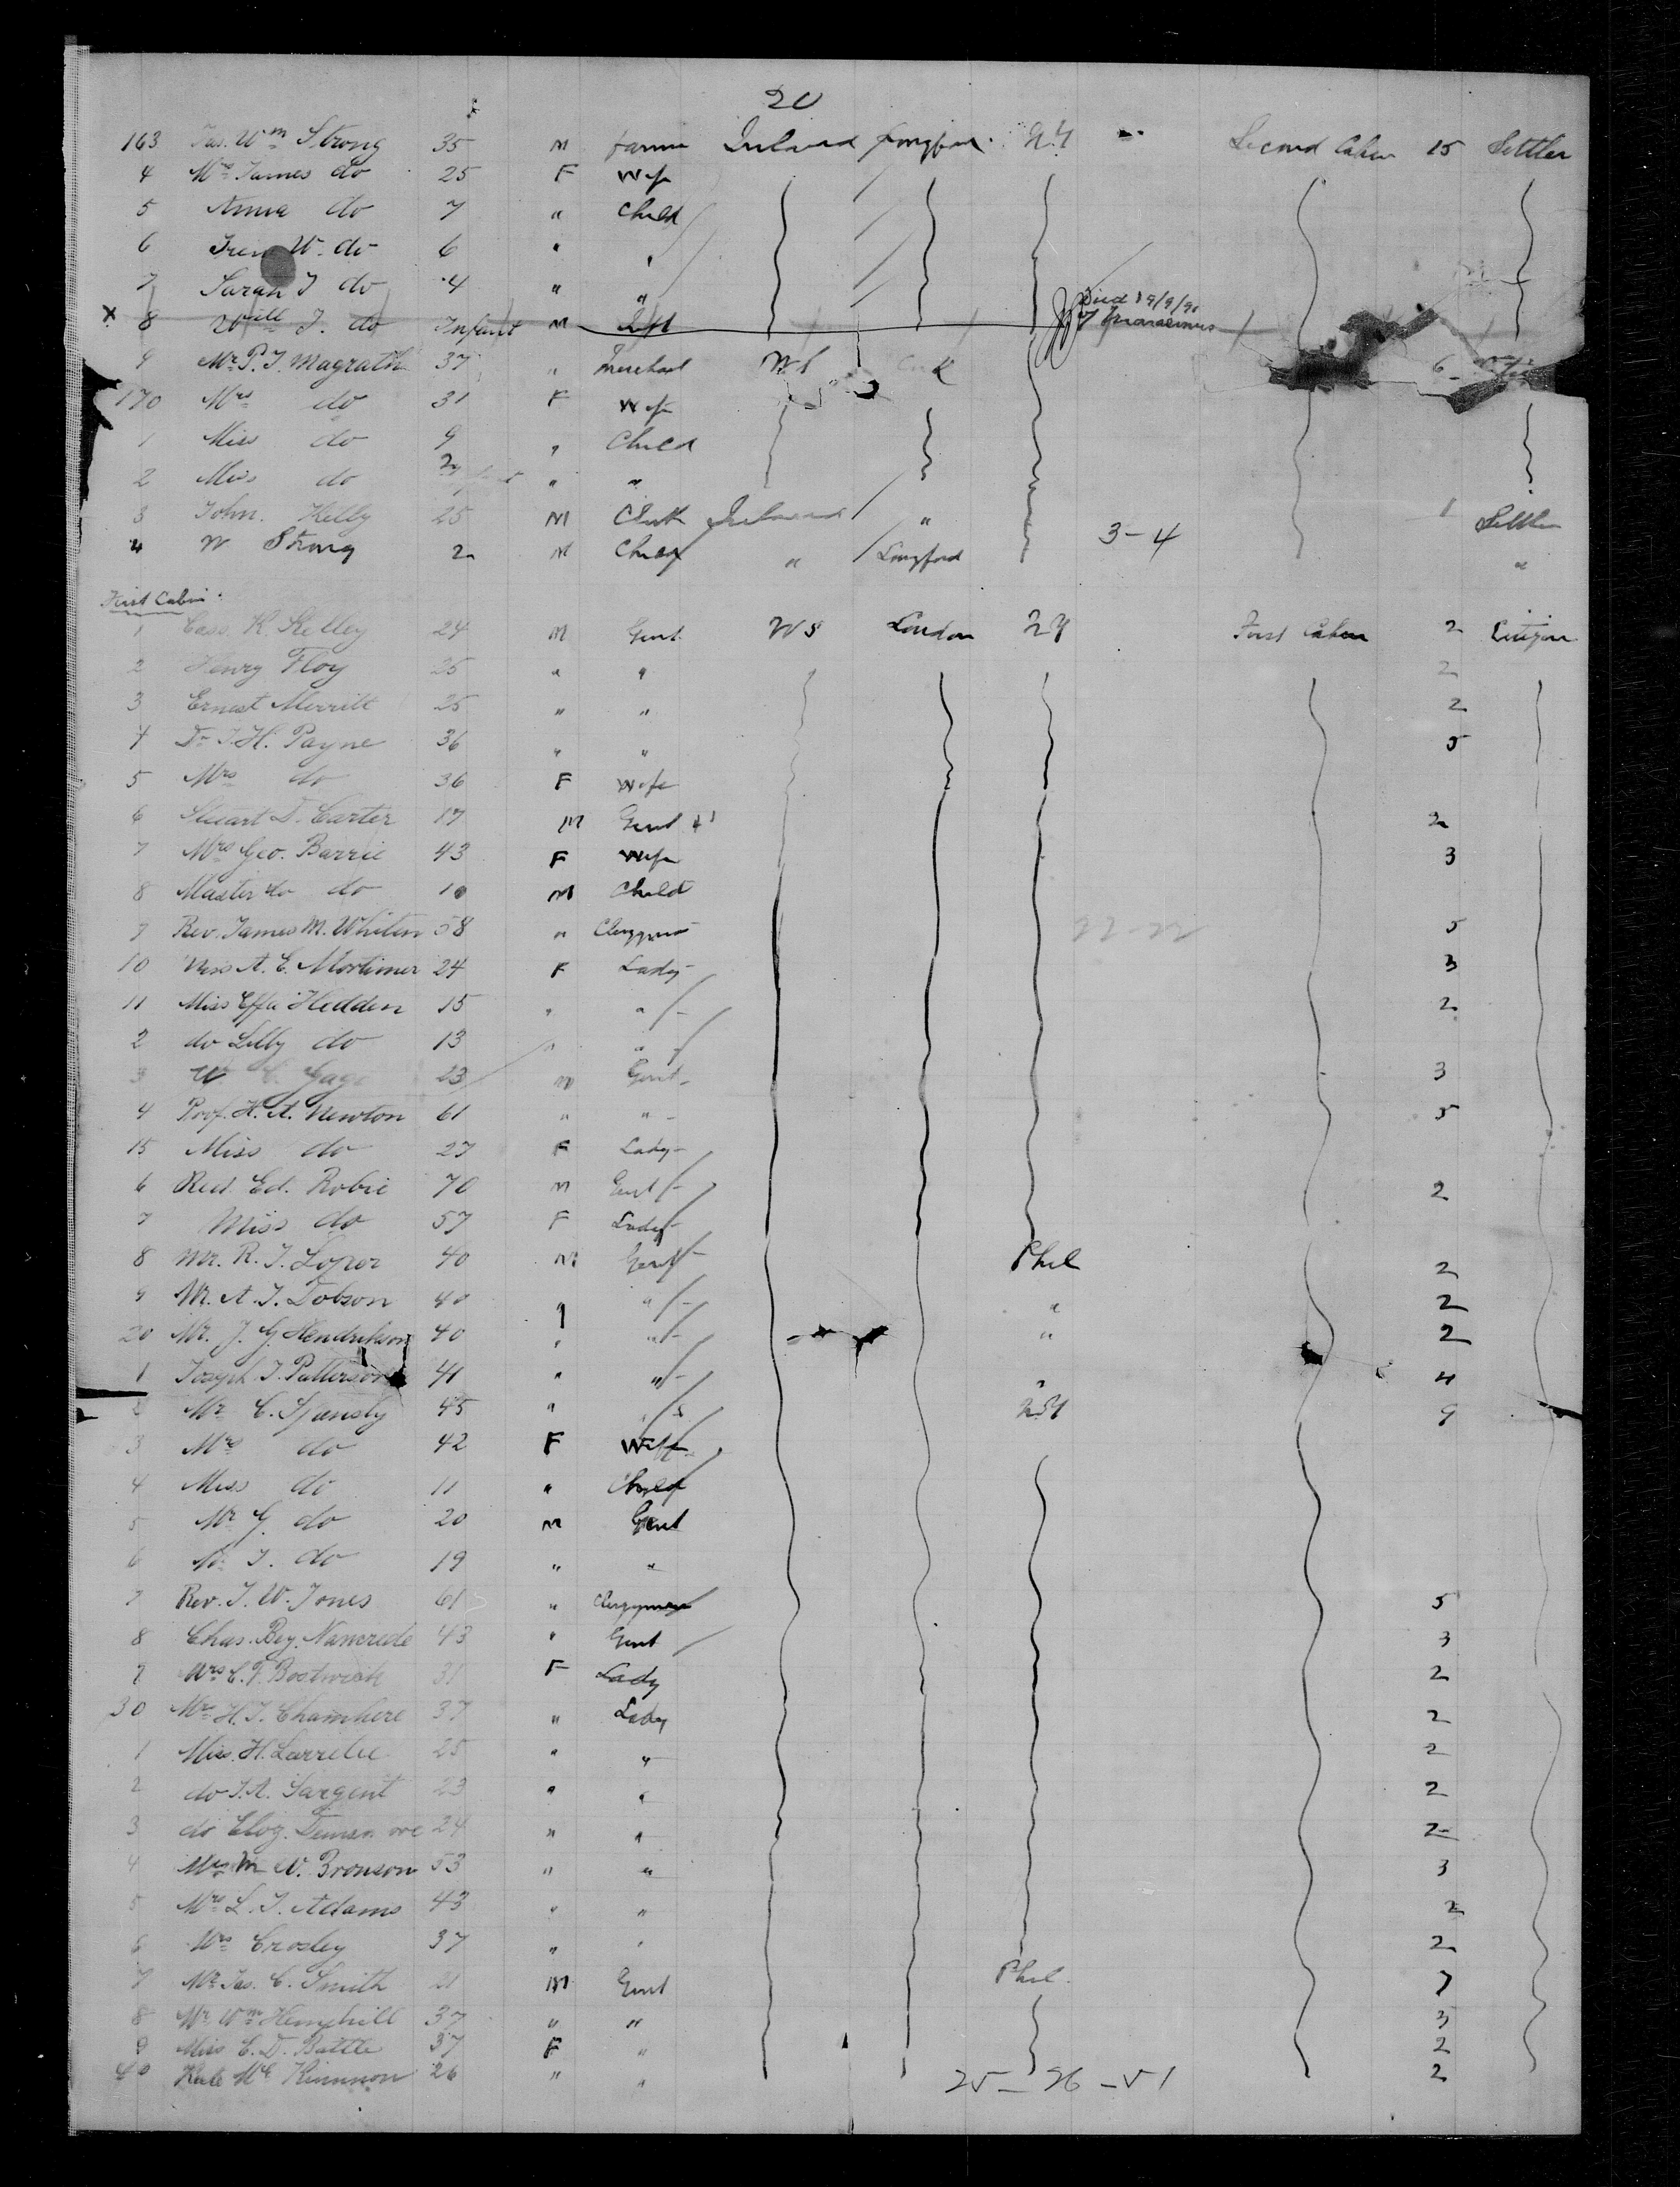 20
163 Jas. Wm Strong 35 M Farmer Ireland Longford N.Y Second Cabin 15 Settler
4 Mrs James do 25 F Wife
5 Anna do 7 " Child
6 W. do 6 " "
7 Sarah J do 4 " "
x 8 Will J. do Infant M Died 19/9/91 Marasmus
9 Mr P. J. Magrath 37 " Merchant 6
170 Mrs do 31 F Wife
1 Miss do 9 " Child
2 Miss do " "
3 John Kelly 25 M Clerk Ireland " 1 Settler
4 W Strong 2 M Child " Longford 3-4 "
First Cabin
1 Cass K. Kelley 24 M Gent. U S London N Y First Cabin 2 Citizen
2 Henry Floy 25 " " 2
3 Ernest Merritt 25 " " 2
4 Dr J. H. Payne 36 " " 5
5 Mrs do 36 F Wife
6 Stuart D. Carter 17 M Gent 2
7 Mrs Geo. Barrie 43 F Wife 3
8 Master do do 10 M Child
9 Rev. James M. Whiton 58 " Clergyman 5
10 Miss A. E. Mortimer 24 F Lady 3
11 Miss Effa Hedden 15 " " 2
2 do Lilly do 13 " "
3 W C. Gage 23 M Gent 3
4 Prof. H. A. Newton 61 " " 5
15 Miss do 27 F Lady
6 Red. Ed. Robie 70 M Gent 2
7 Miss do 57 F Lady
8 Mr. R. J. Lopor 40 M Gent Phil 2
9 Mr. A. J. Dobson 40 " " " 2
20 Mr. J. G Hendrikson 40 " " " 2
1 Joseph J. Patterson 41 " " " 4
2 Mr C. 45 " " N.Y 9
3 Mrs do 42 F Wife
4 Miss do 11 " Child
5 Mr G. do 20 M Gent
6 Mr J. do 19 " "
7 Rev. J. W. Jones 61 " Clergyman 5
8 Chas. Bey. Nancrede 43 " Gent 3
9 Mrs C. F. Bostwick 31 F Lady 2
30 Mrs H. J. Chambers 37 " Lady 2
1 Miss. H. 25 " " 2
2 do J. A. Sargent 23 " " 2
3 do 24 " " 2
4 Mrs M W. Bronson 53 " " 3
5 Mrs L. J. Adams 43 " " 2
6 Mrs Crosley 37 " " 2
7 Mr Jas. C. Smith 21 M Gent Phil. 7
8 Mr Wm Hemphill 37 " " 3
9 Miss E. D. Battle 37 F " 2
40 Kate Mc Kinnon 26 " " 2
25 - 26 - 51